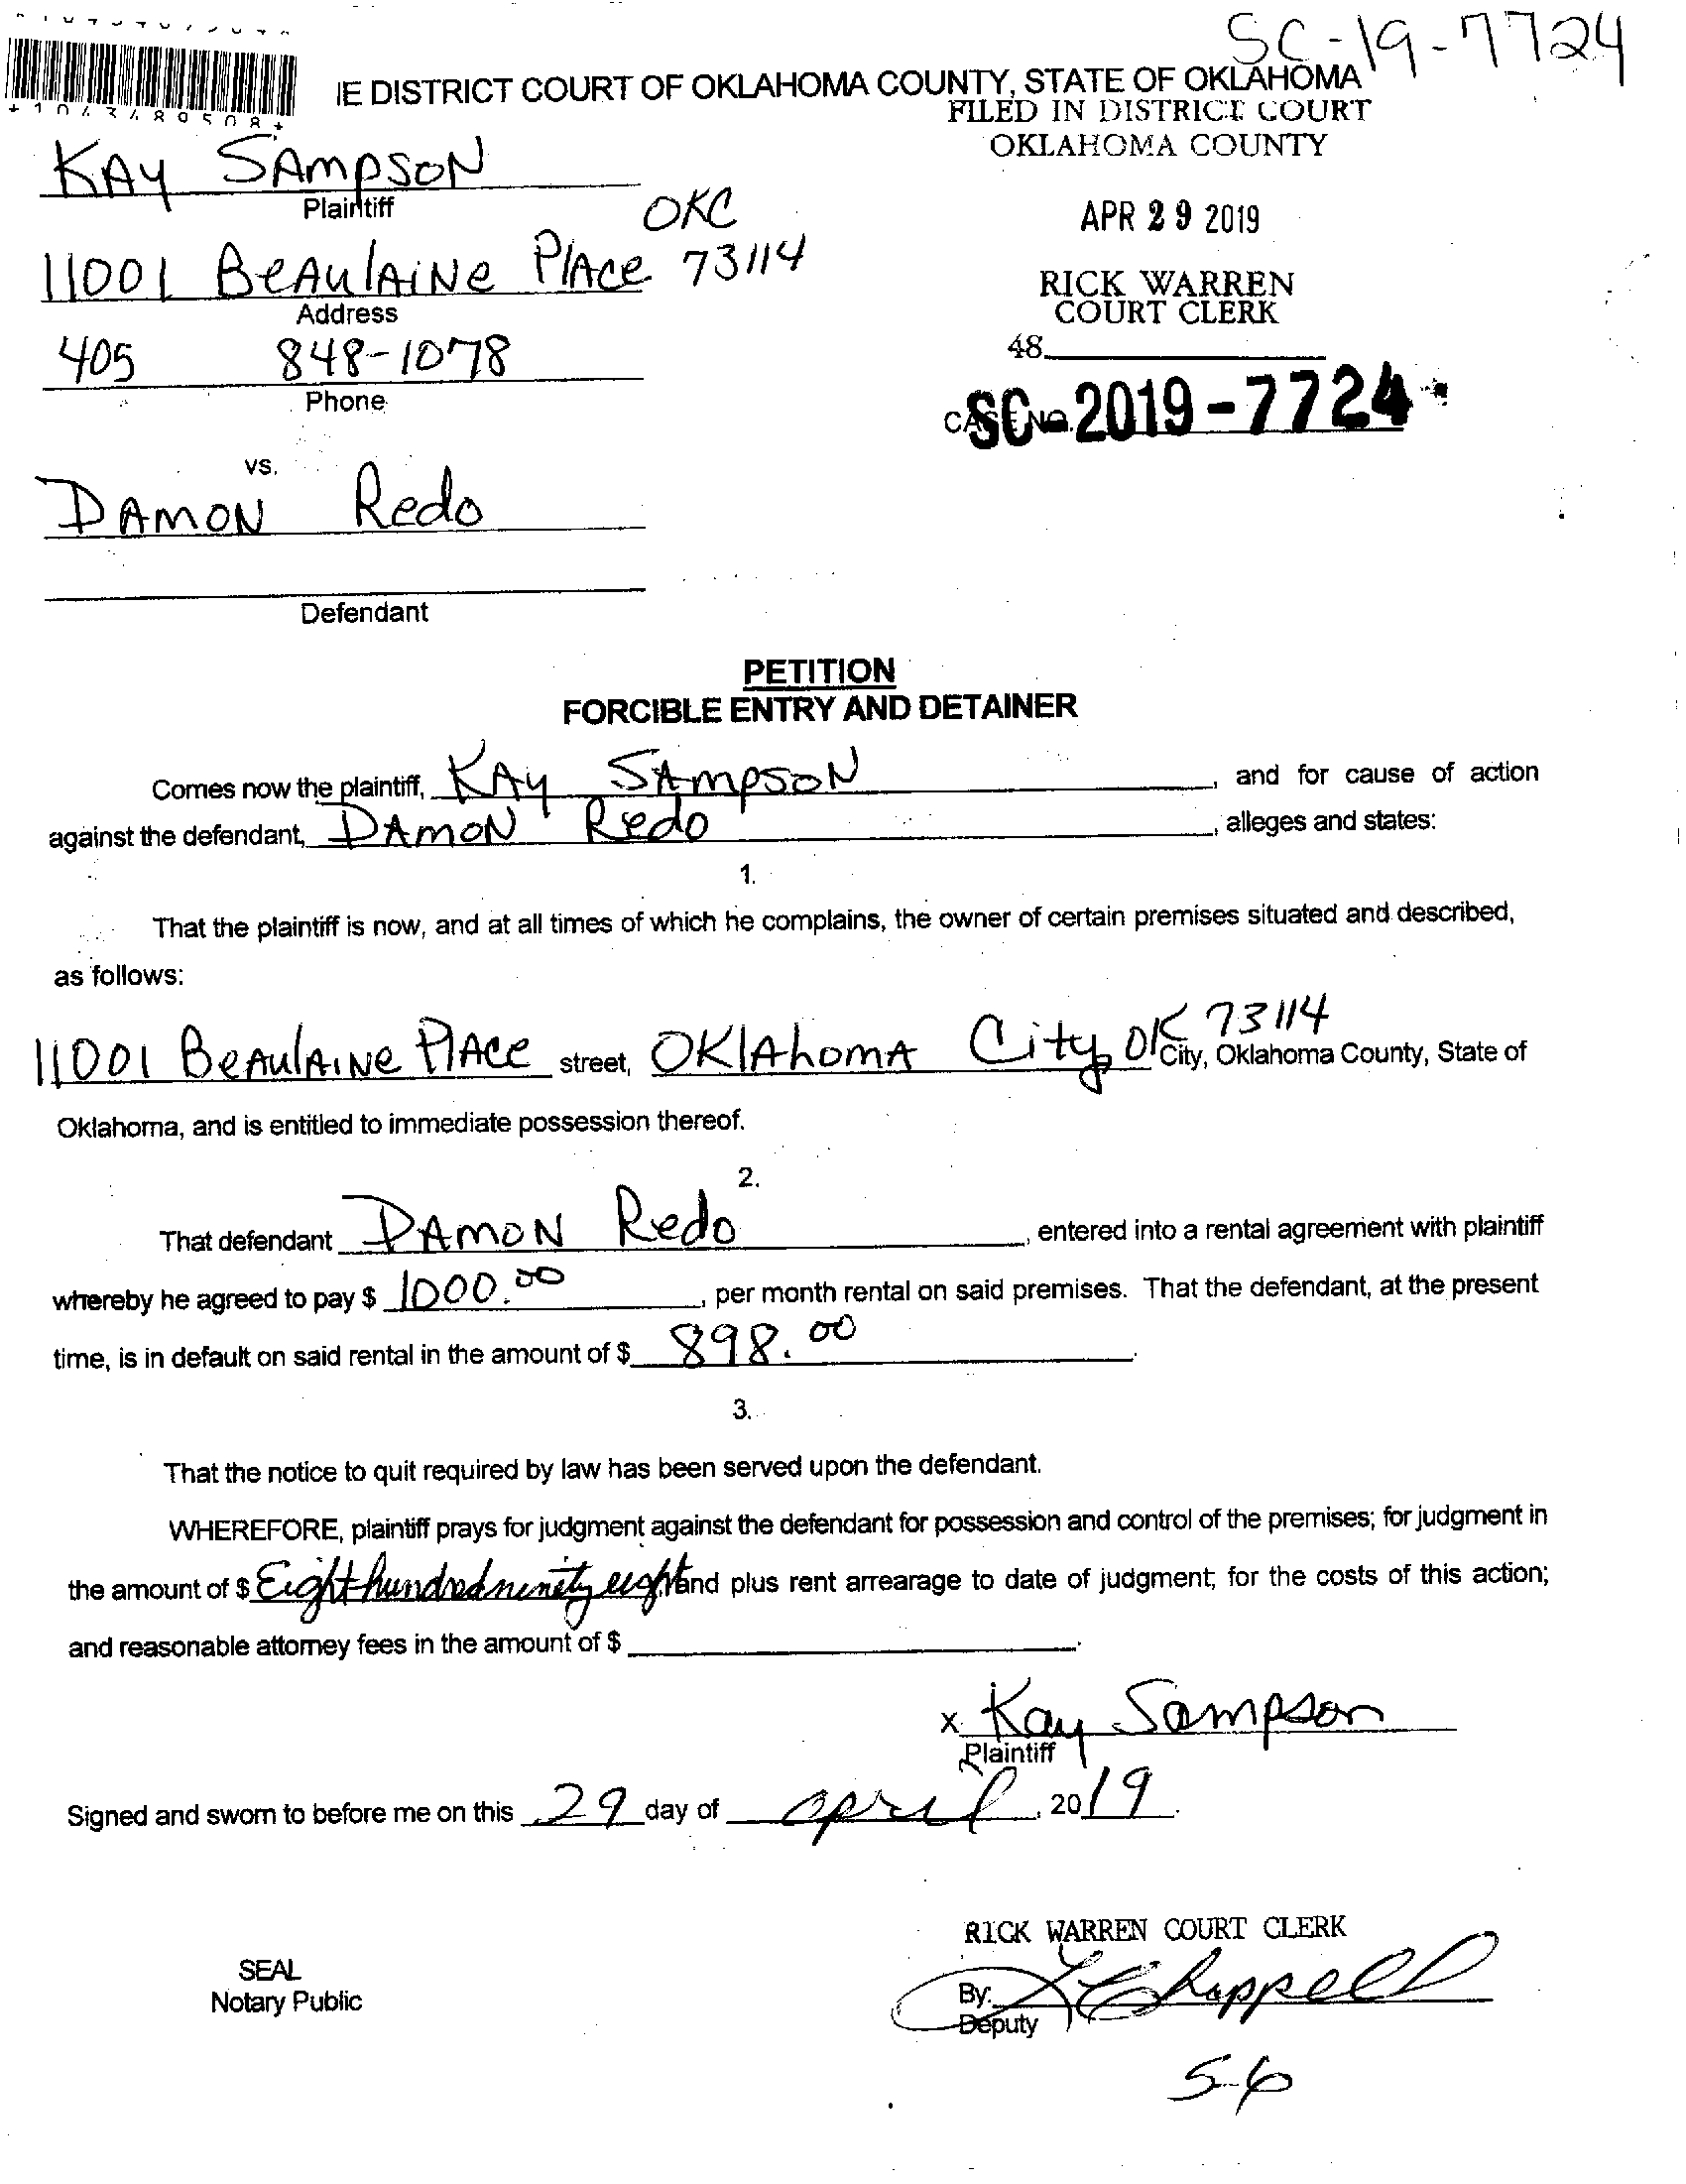 SC-19-7724
IE DISTRICT COURT OF OKLAHOMA COUNTY, STATE OF OKLAHOMA
FILED IN DISTRICT COURT
OKLAHOMA COUNTY
KAY SAMPSON
Plaintiff
OKC
APR 29 2019
11001 BeAulAiNe PlAce 73114
Address
RICK WARREN
COURT CLERK
405 848-1078
Phone
48
CASE NO.
SC-2019-7724
vs.
DAMON Redo
Defendant
PETITION
FORCIBLE ENTRY AND DETAINER
Comes now the plaintiff, KAY SAMPSON, and for cause of action
against the defendant, DAMON Redo, alleges and states:
1.
That the plaintiff is now, and at all times of which he complains, the owner of certain premises situated and described,
as follows:
11001 BeAulAiNe PlAce street, OKlAhomA City, OK 73114 City, Oklahoma County, State of
Oklahoma, and is entitled to immediate possession thereof.
2.
That defendant DAMON Redo, entered into a rental agreement with plaintiff
whereby he agreed to pay $ 1000.00, per month rental on said premises. That the defendant, at the present
time, is in default on said rental in the amount of $ 898.00.
3.
That the notice to quit required by law has been served upon the defendant.
WHEREFORE, plaintiff prays for judgment against the defendant for possession and control of the premises; for judgment in
the amount of $ Eight hundred ninety eight and plus rent arrearage to date of judgment; for the costs of this action;
and reasonable attorney fees in the amount of $
x Kay Sampson
Plaintiff
Signed and sworn to before me on this 29 day of april, 2019.
RICK WARREN COURT CLERK
SEAL
Notary Public
By: Chappell
Deputy
5-6